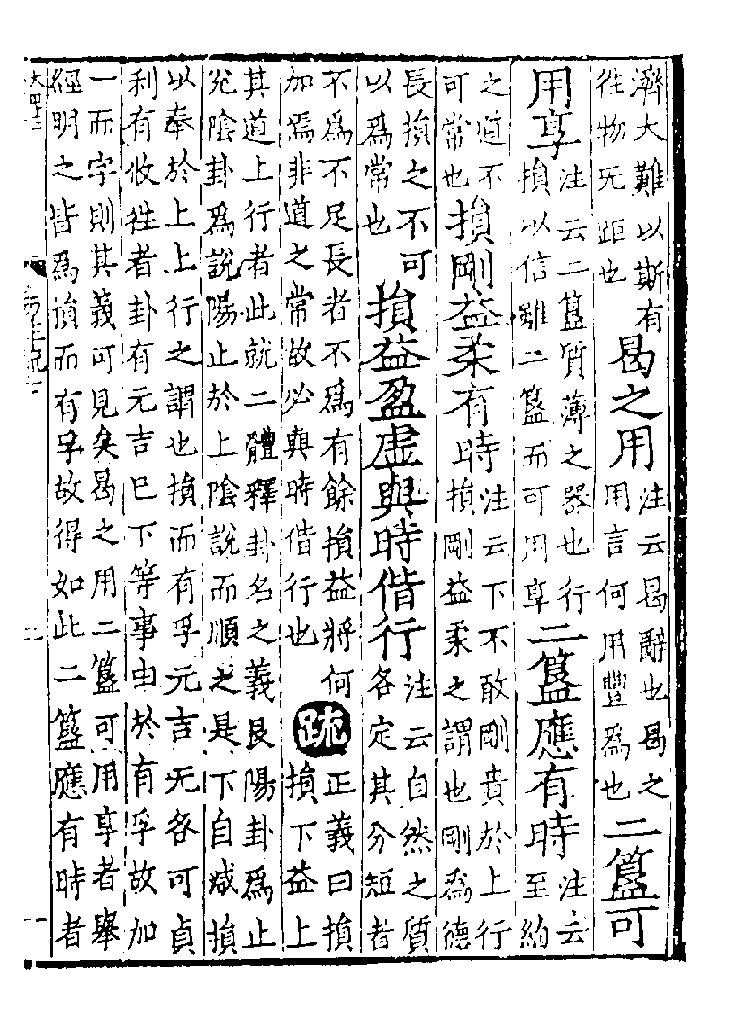 濟大難以斯有
往物无距也
曷之用
注云曷辭也曷之
用言何用豐爲也
二簋可
用享
注云二簋質薄之器也行
損以信雖二簋而可用享
二簋應有時
注云
至約
之道不
可常也
損剛益柔有時
注云下不敢剛貴於上行
損剛益柔之謂也剛爲德
長損之不可
以爲常也
損益盈虛與時偕行
注云自然之質
各定其分短者
不爲不足長者不爲有餘損益將何
加焉非道之常故必與時偕行也
疏
正義曰損
損下益上
其道上行者此就二體釋卦名之義艮陽卦爲止
兌陰卦爲說陽止於上陰說而順之是下自减損
以奉於上上行之謂也損而有孚元吉无咎可貞
利有攸往者卦有元吉已下等事由於有孚故加
一而字則其義可見矣曷之用二簋可用享者舉
經明之皆爲損而有孚故得如此二簋應有時者